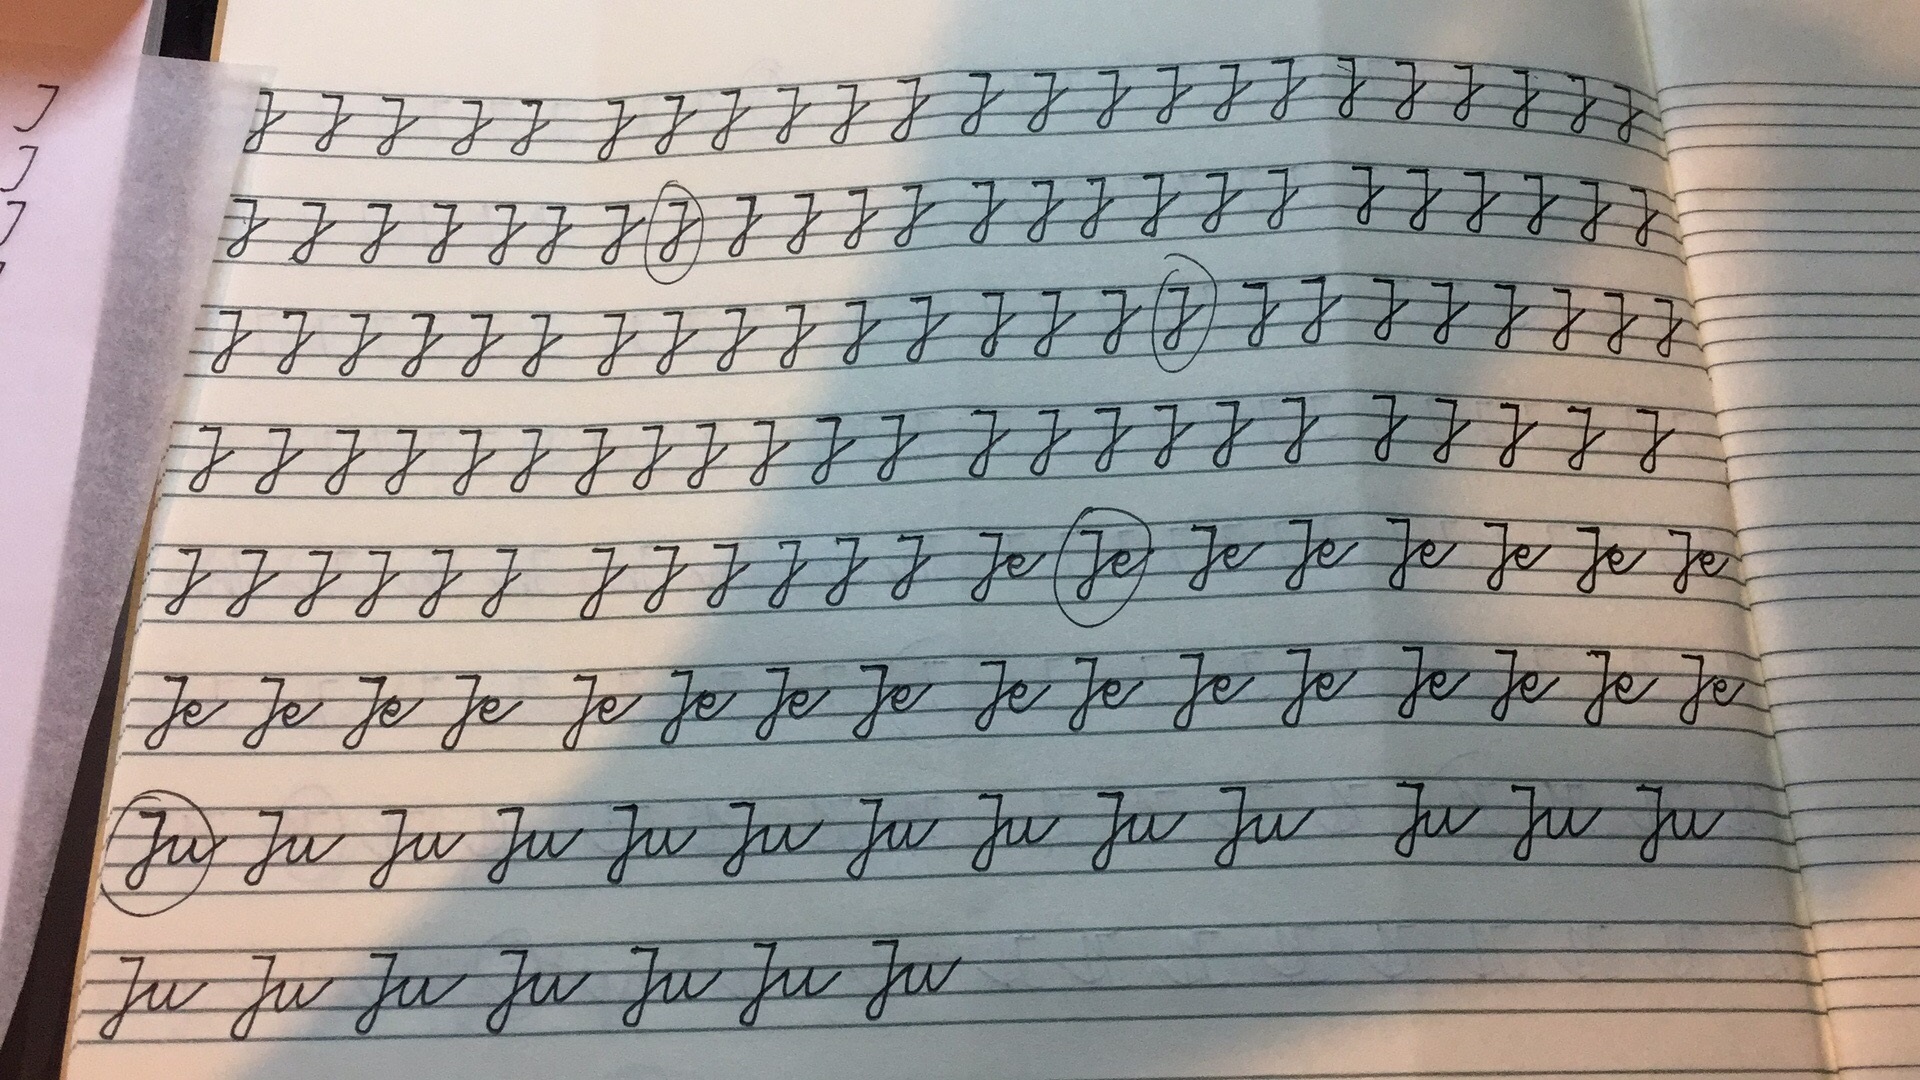 J J J J J J J J J J J J J J J J J J J J J J J
J J J J J J J J J J J J J J J J J J J J J J J J
J J J J J J J J J J J J J J J J J J J J J J J J
J J J J J J J J J J J J J J J J J J J J J J J
J J J J J J J J J J J J Je Je Je Je Je Je Je Je
Je Je Je Je Je Je Je Je Je Je Je Je Je Je Je Je
Ju Ju Ju Ju Ju Ju Ju Ju Ju Ju Ju Ju Ju
Ju Ju Ju Ju Ju Ju Ju